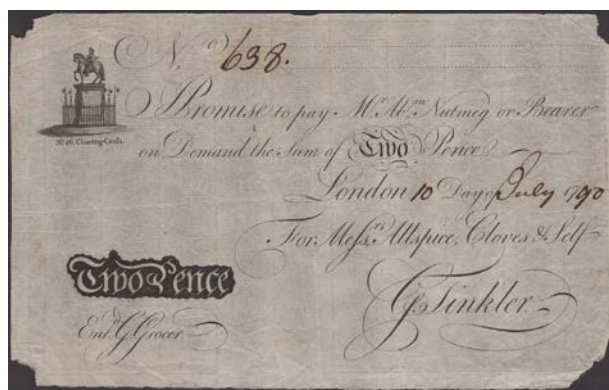 No 638.
No. 26, Charing Cross.
I Promise to pay Mr. Abm. Nutmeg or Bearer
on Demand the Sum of Two Pence
London 10 Day of July 1790
For Messrs. Allspice, Cloves & Self
Two Pence
Gs. Tinkler
Entd. G. Grocer